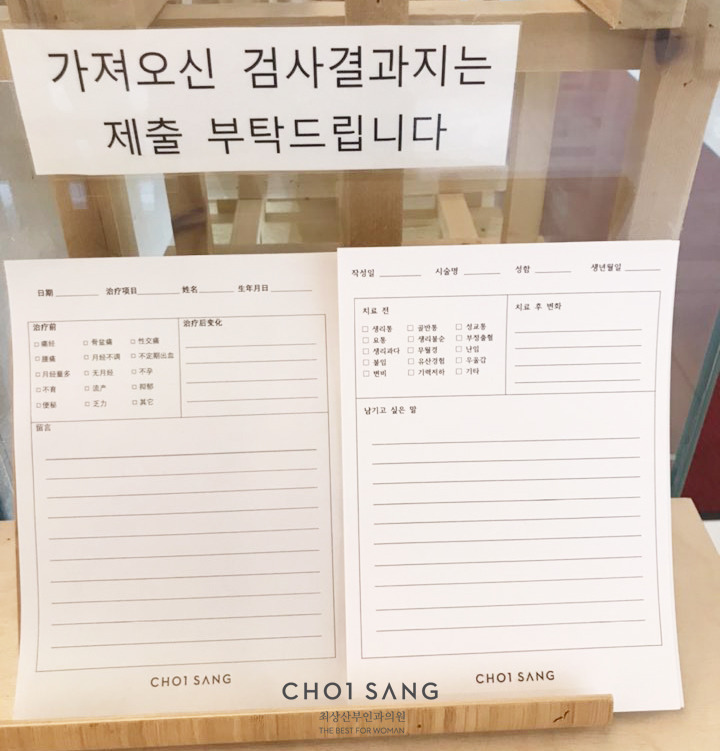 가져오신 검사결과지는
제출 부탁드립니다
日期 治疗项目 姓名 生年月日
治疗前
治疗后变化
□ 痛经 □ 骨盆痛 □ 性交痛
□ 腰痛 □ 月经不调 □ 不定期出血
□ 月经量多 □ 无月经 □ 不孕
□ 不育 □ 流产 □ 抑郁
□ 便秘 □ 乏力 □ 其它
留言
CHOI SANG
작성일 시술명 성함 생년월일
치료 전
치료 후 변화
□ 생리통 □ 골반통 □ 성교통
□ 요통 □ 생리불순 □ 부정출혈
□ 생리과다 □ 무월경 □ 난임
□ 불임 □ 유산경험 □ 우울감
□ 변비 □ 기력저하 □ 기타
남기고 싶은 말
CHOI SANG
CHOI SANG
최상산부인과의원
THE BEST FOR WOMAN